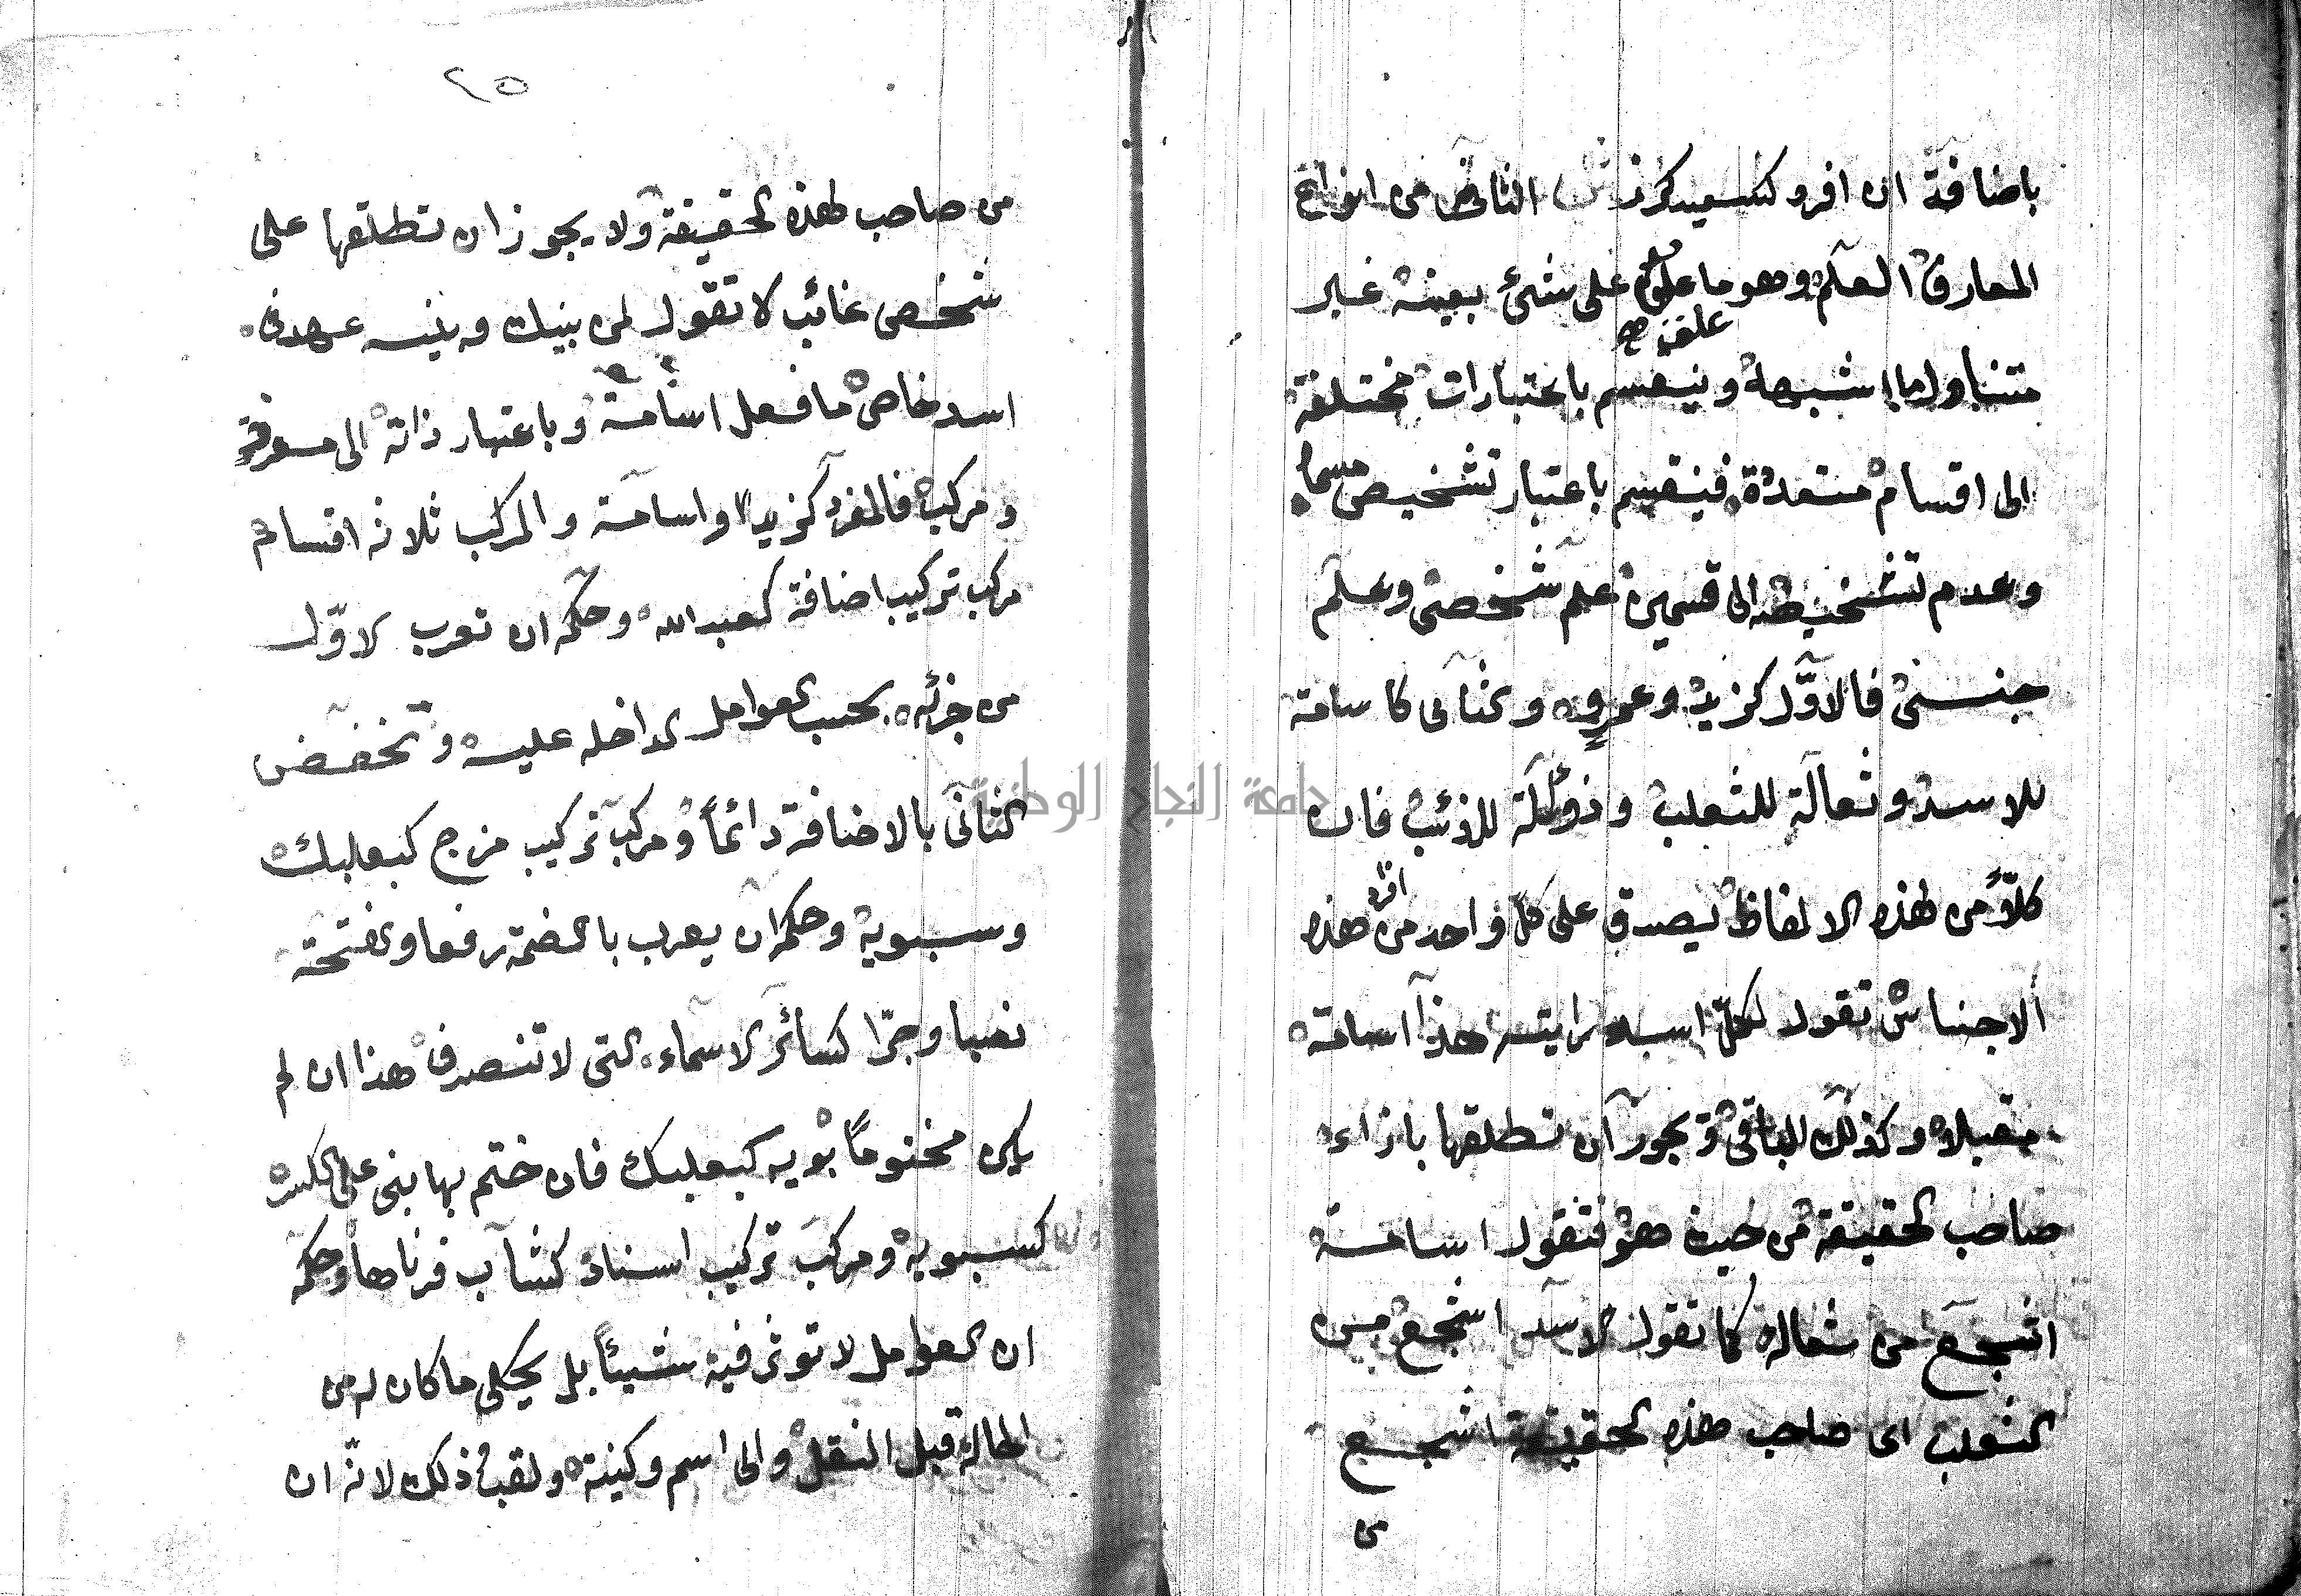 باضافة ان افرد كسعيد كرز الثانى من انواع
المعارف العلم وهو ما علق على شئ بعينه غير
علق صح
متناول ما اشبهه وينقسم باعتبارات مختلفة
الى اقسام متعددة فينقسم باعتبار تشخيص مسماه
وعدم تشخيصه الى قسمين علم شخصى وعلم
جنسى فالاول كزيد وعمرو والثانى كاسامة
للاسد وثعالة للثعلب وذؤالة للذئب فان
كلاًّ من هذه الالفاظ يصدق على كل واحد من افراد هذه
الاجناس تقول لكلّ اسد رايته هذا اسامة
مقبلا وكذلك الباقى ويجوز ان تطلقها بازاء
صاحب الحقيقة من حيث هو فتقول اسامة
اشجع من ثعالة كما تقول الاسد اشجع من
الثعلب اى صاحب هذه الحقيقة اشجع
من
٢٥
من صاحب هذه الحقيقة ولا يجوز ان تطلقها على
شخص غائب لا تقول لمن بينك وبينه عهد فى
اسد خاص ما فعل اسامة وباعتبار ذاته الى مفرد
ومركب فالمفرد كزيد واسامة والمركب ثلاثة اقسام
مركب تركيب اضافة كعبد الله وحكمه ان تعرب الاوّل
من جزئه بحسب العوامل الداخله عليه وتخفض
الثانى بالاضافة دائماً ومركب تركيب مزج كبعلبك
وسبويه وحكمه ان يعرب بالضمة رفعا والفتحة
نصبا وجرّا كسائر الاسماء التى لا تنصرف هذا ان لم
يكن مختوماً بويه كبعلبك فان ختم بها بنى على الكسر
كسبويه ومركب تركيب اسناد كشاب قرناها وحكمه
ان العوامل لا توثر فيه شيئاً بل يحكى ما كان له من
الحالة قبل النقل والى اسم وكنية ولقب وذلك لانّه ان